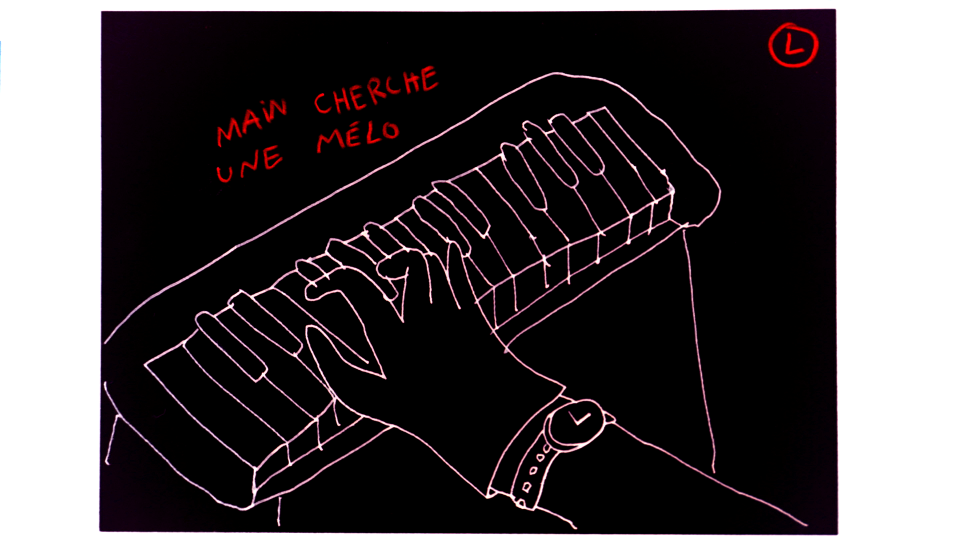 L
MAIN CHERCHE
UNE MÉLO